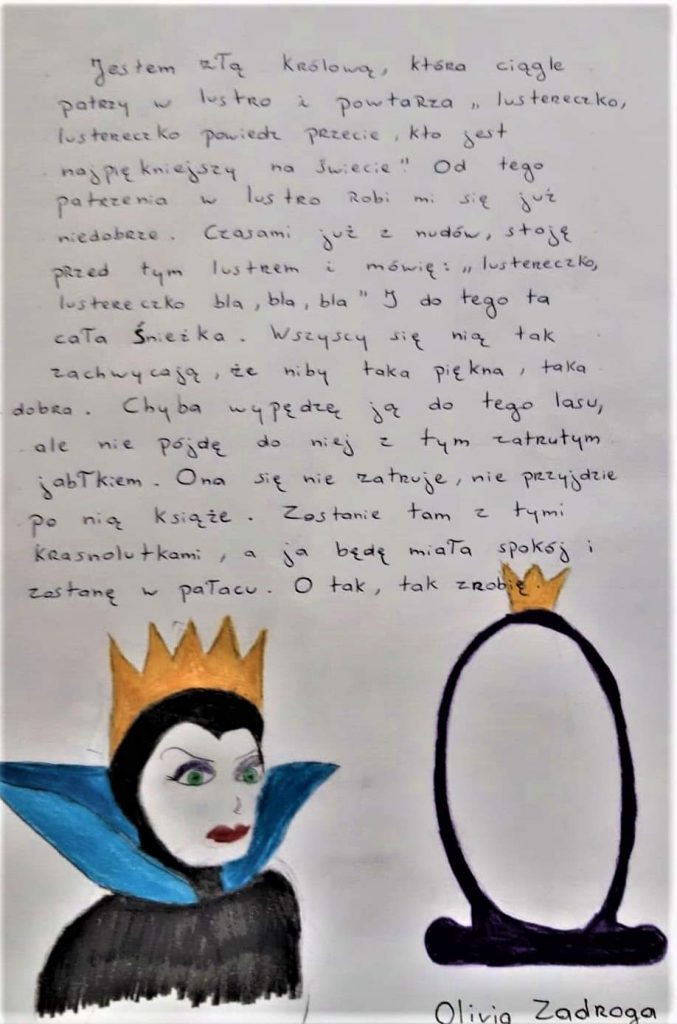 Jestem złą królową, która ciągle
patrzy w lustro i powtarza „lustereczko,
lustereczko powiedz przecie, kto jest
najpiękniejszy na świecie" Od tego
patrzenia w lustro robi mi się już
niedobrze. Czasami już z nudów, stoję
przed tym lustrem i mówię: „lustereczko,
lustereczko bla, bla, bla" I do tego ta
cała Śnieżka. Wszyscy się nią tak
zachwycają, że niby taka piękna, taka
dobra. Chyba wypędzę ją do tego lasu,
ale nie pójdę do niej z tym zatrutym
jabłkiem. Ona się nie zatruje, nie przyjdzie
po nią książe. Zostanie tam z tymi
krasnolutkami, a ja będę miała spokój i
zostanę w pałacu. O tak, tak zrobię.
Olivia Zadroga